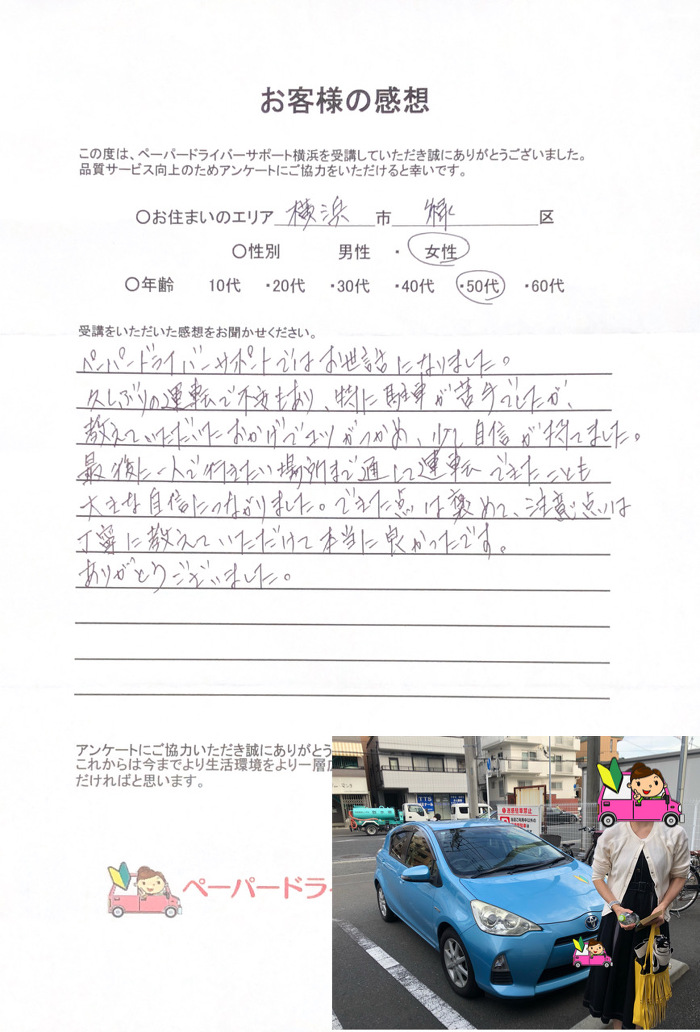 お客様の感想
この度は、ペーパードライバーサポート横浜を受講していただき誠にありがとうございました。
品質サービス向上のためアンケートにご協力をいただけると幸いです。
〇お住まいのエリア 横浜 市 緑 区
〇性別 男性 ・ 女性
〇年齢 10代 ・20代 ・30代 ・40代 ・50代 ・60代
受講をいただいた感想をお聞かせください。
ペーパードライバーサポートではお世話になりました。
久しぶりの運転で不安もあり、特に駐車が苦手でしたが、
教えていただいたおかげでコツがつかめ、少し自信が持てました。
最後に一人で行きたい場所まで通して運転できたことも
大きな自信につながりました。できた点は褒めて、注意点は
丁寧に教えていただけて本当に良かったです。
ありがとうございました。
アンケートにご協力いただき誠にありがとう
これからは今までより生活環境をより一層広
だければと思います。
ペーパードライ